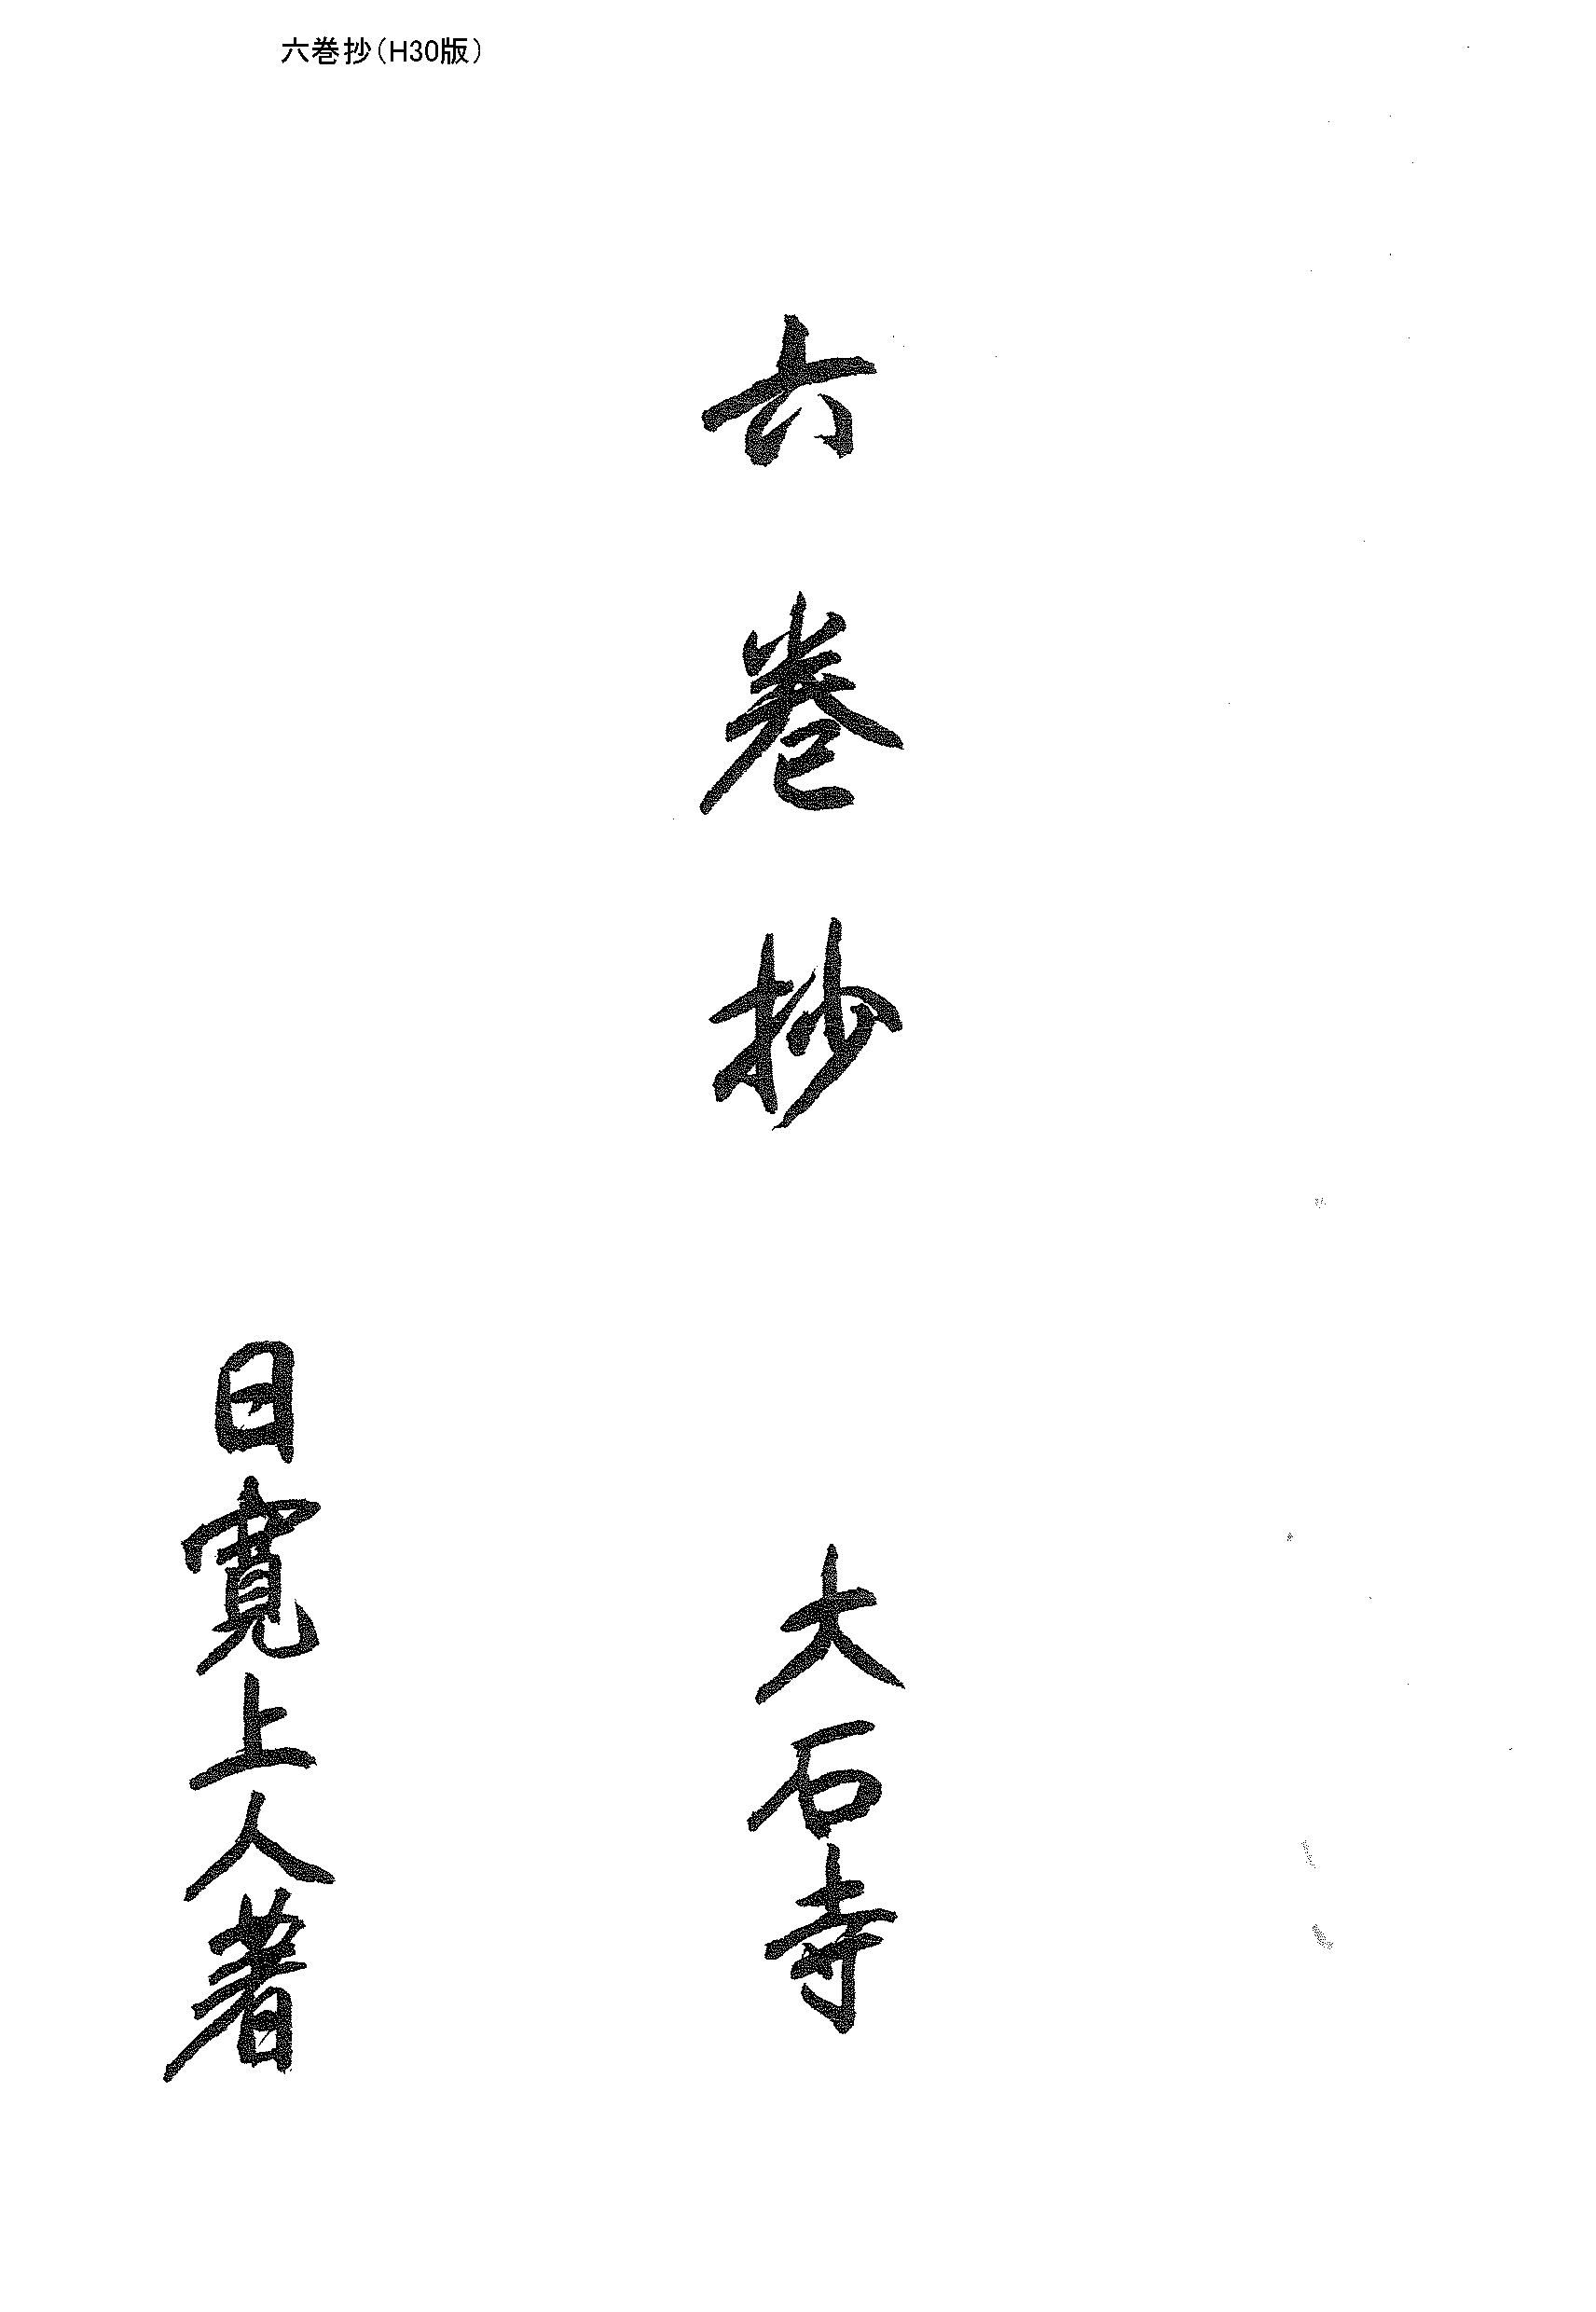 六巻抄（H30版）
六巻抄
大石寺
日寛上人著